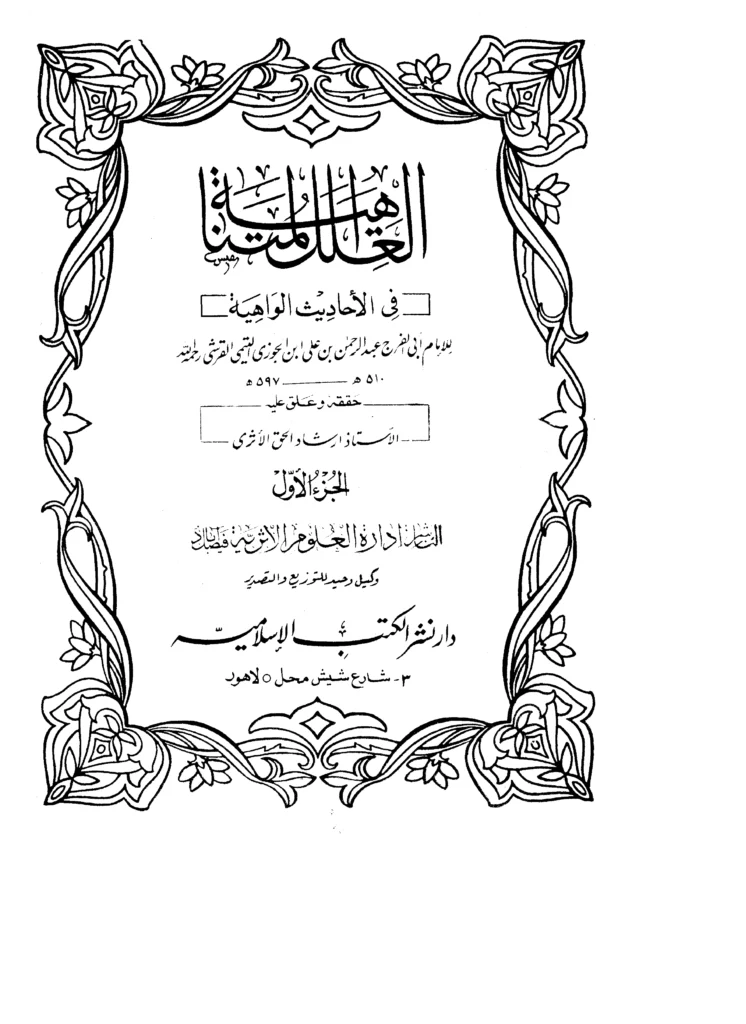 العلل المتناهية
في الأحاديث الواهية
للإمام أبي الفرج عبد الرحمن بن علي ابن الجوزي التيمي القرشي رحمه الله
٥١٠ ھ ——— ٥٩٧ ھ
حققه وعلق عليه
الأستاذ ارشاد الحق الأثري
الجزء الأوّل
الناشر ادارة العلوم الاثرية فيصل آباد
وكيل وحيد للتوزيع والتصدير
دار نشر الكتب الإسلامية
٣- شارع شيش محل ○ لاهور